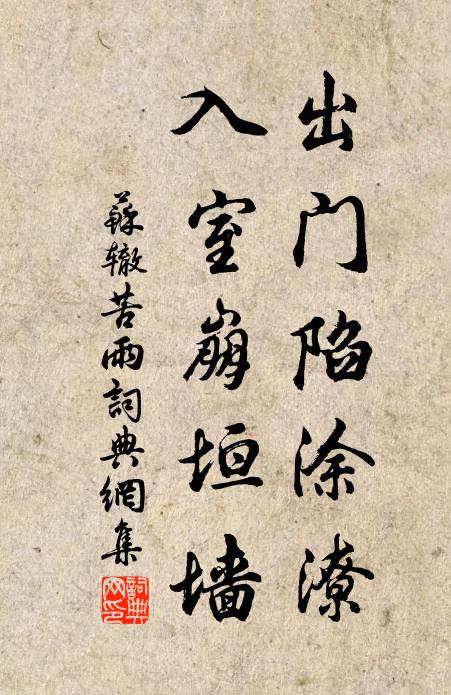 出门陷涂潦
入室崩垣墙
蘇辙苦雨詞典網集
詞典
网印